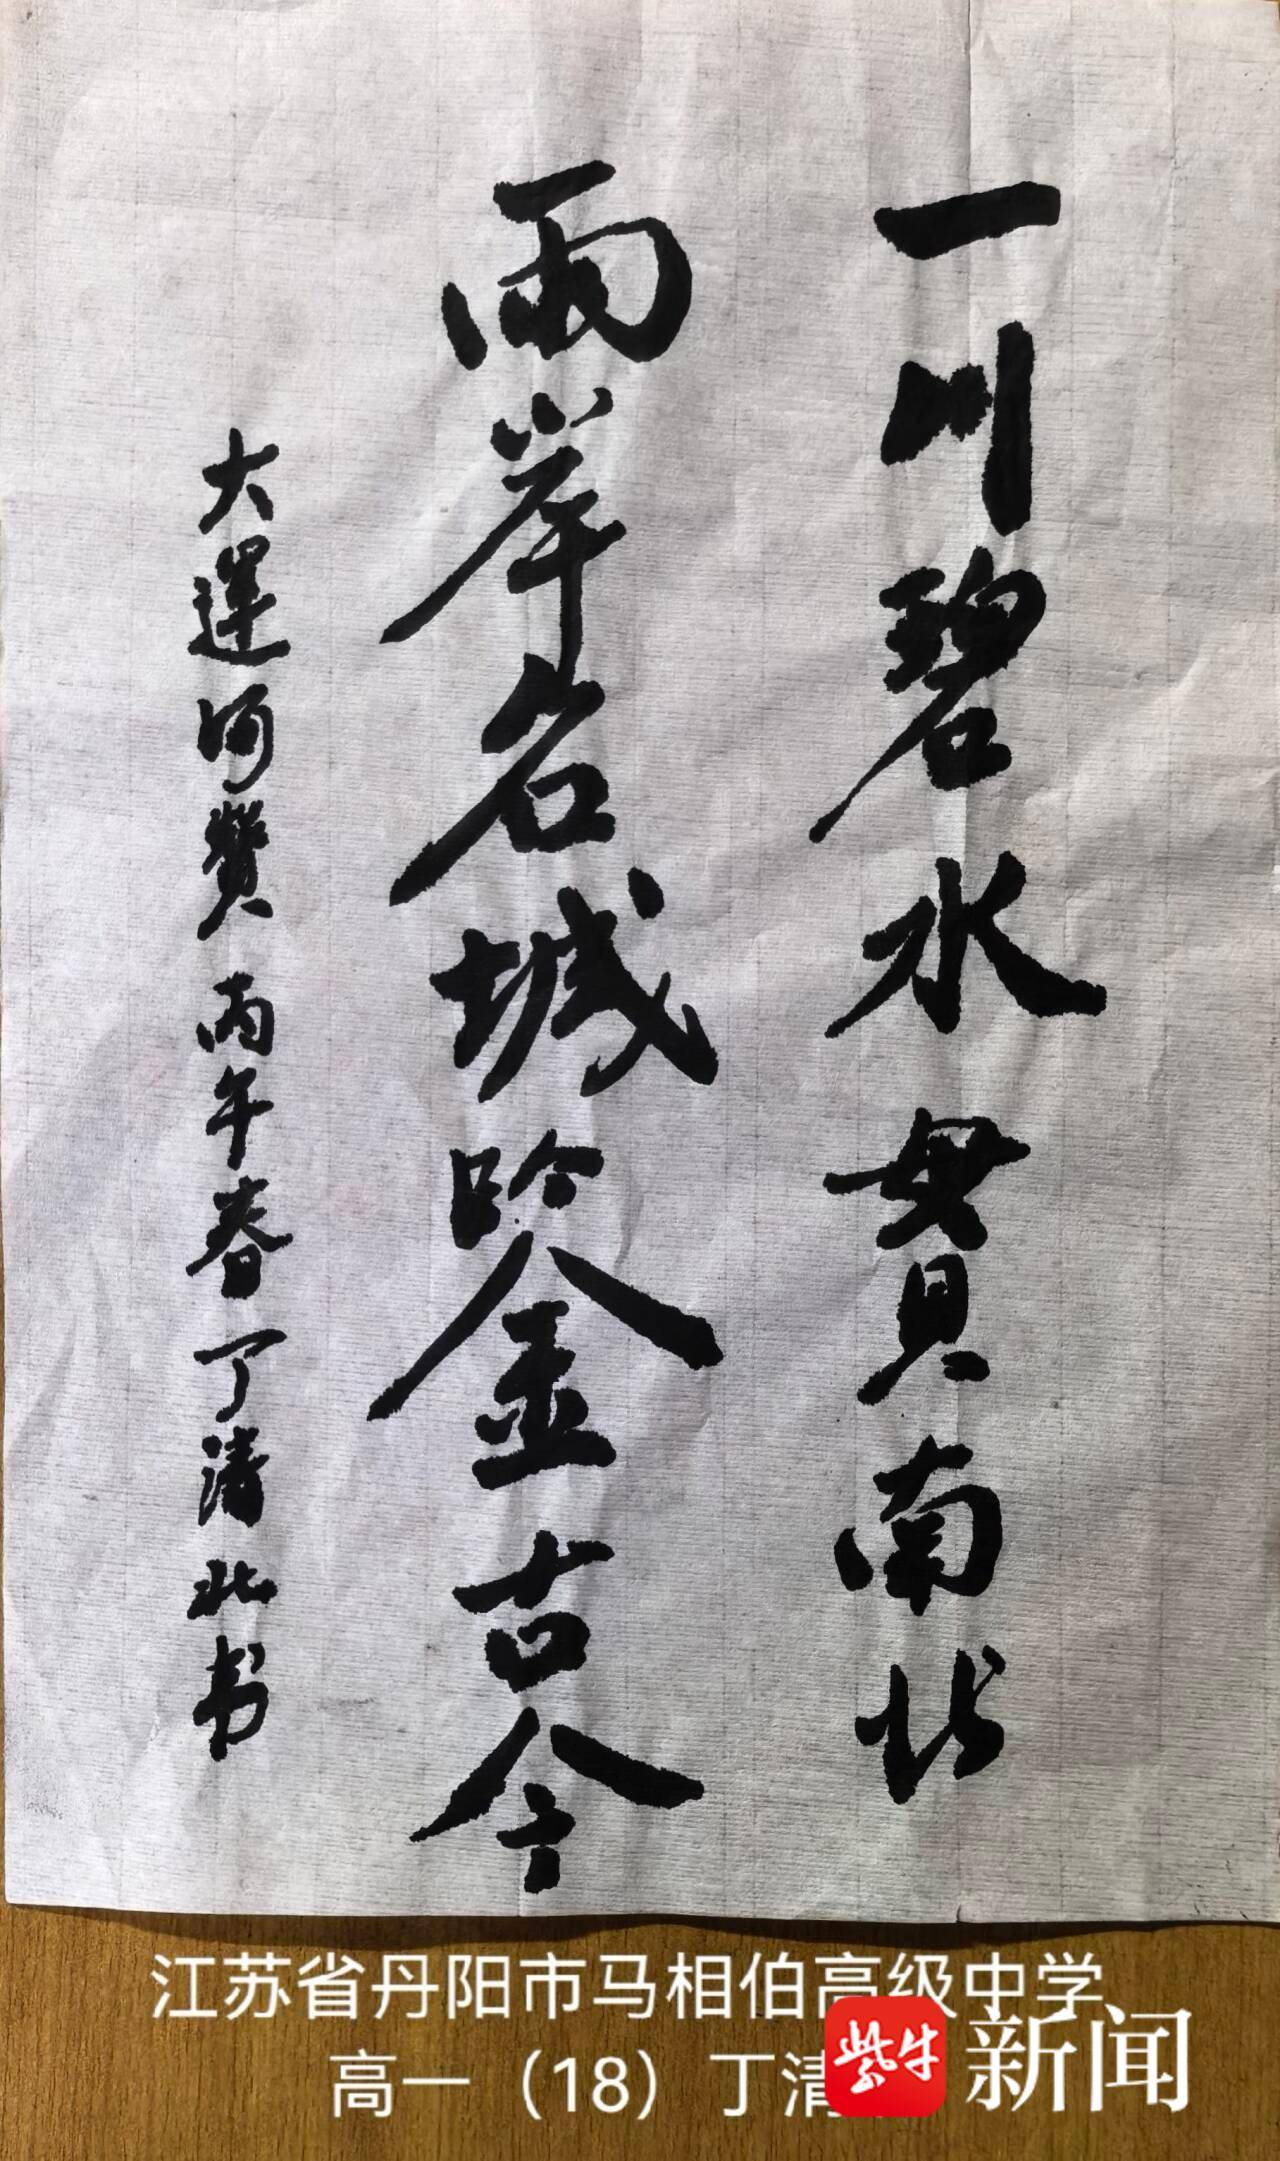 一川碧水貫南北
兩岸名城鑒古今
大運河贊 丙午春丁清北书
江苏省丹阳市马相伯高级中学
高一（18）丁清
紫牛新闻